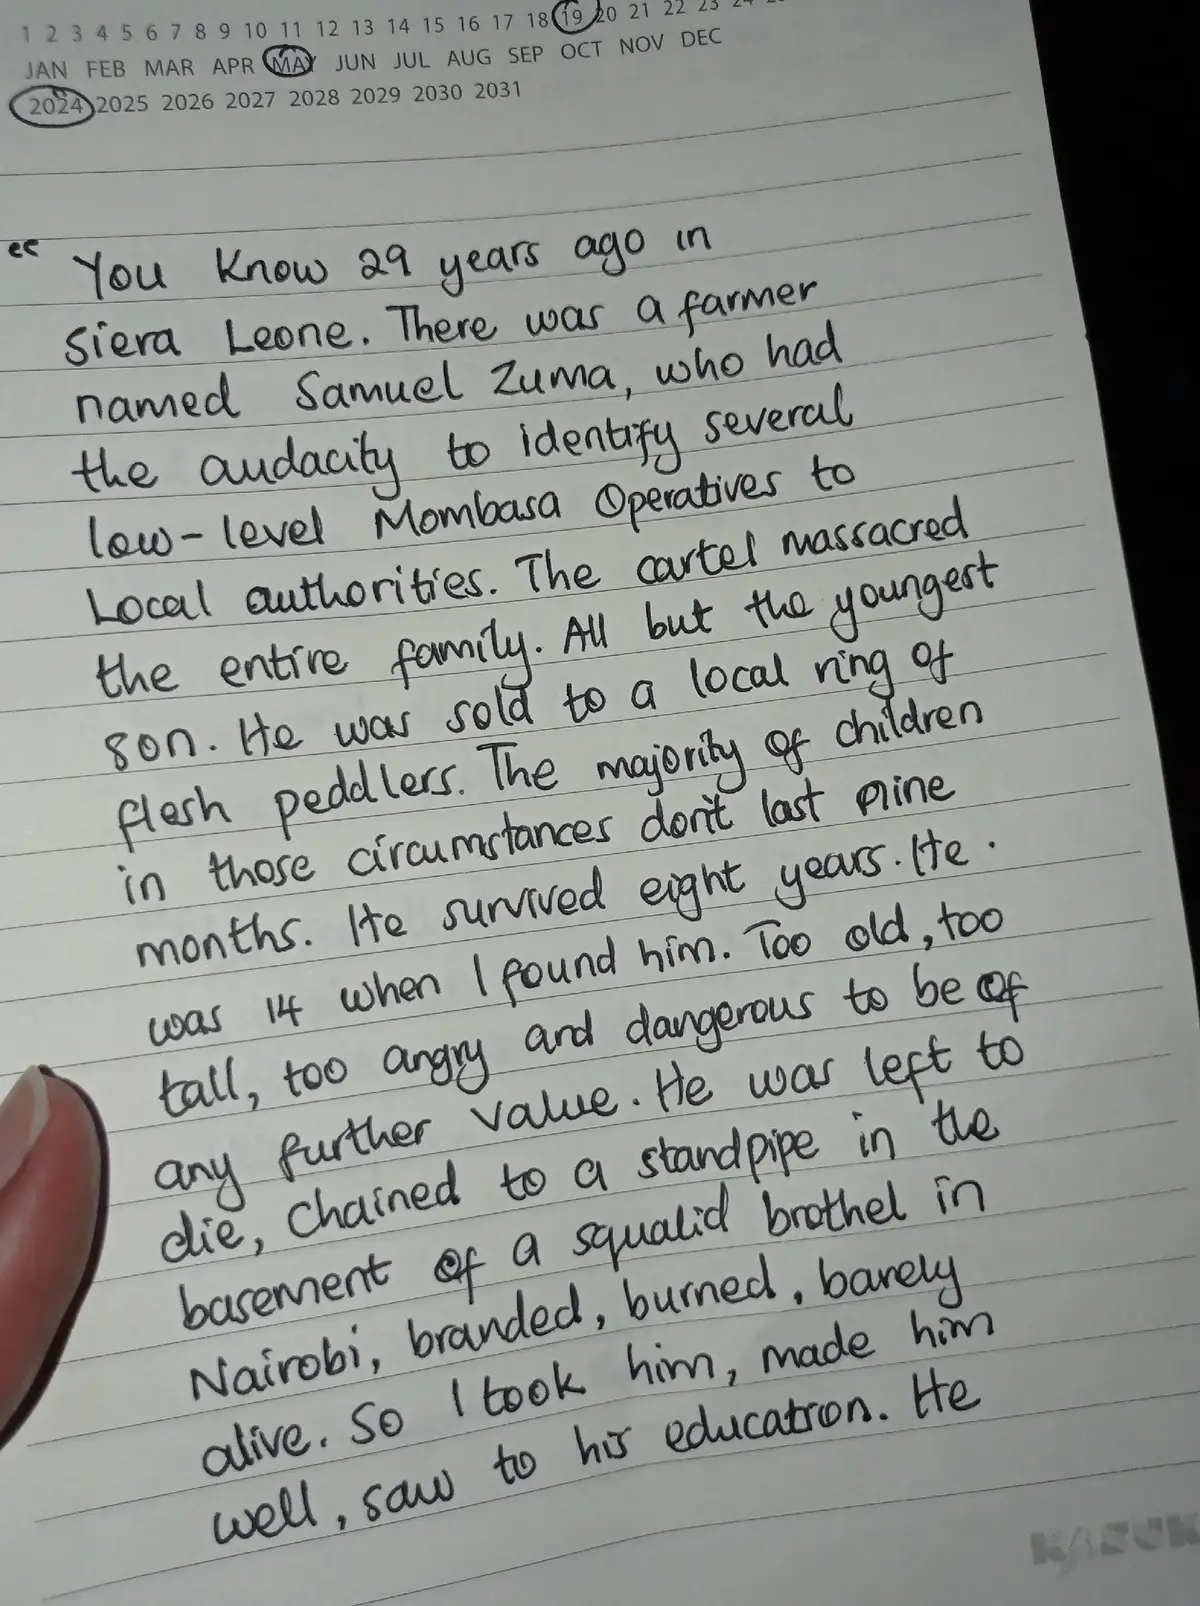 1 2 3 4 5 6 7 8 9 10 11 12 13 14 15 16 17 18 19 20 21 22 23
JAN FEB MAR APR MAY JUN JUL AUG SEP OCT NOV DEC
2024 2025 2026 2027 2028 2029 2030 2031
“ You Know 29 years ago in
Siera Leone. There was a farmer
named Samuel Zuma, who had
the audacity to identify several
low-level Mombasa Operatives to
Local authorities. The cartel massacred
the entire family. All but the youngest
son. He was sold to a local ring of
flesh peddlers. The majority of children
in those circumstances don't last nine
months. He survived eight years. He
was 14 when I found him. Too old, too
tall, too angry and dangerous to be of
any further value. He was left to
die, Chained to a standpipe in the
basement of a squalid brothel in
Nairobi, branded, burned, barely
alive. So I took him, made him
well, saw to his education. He